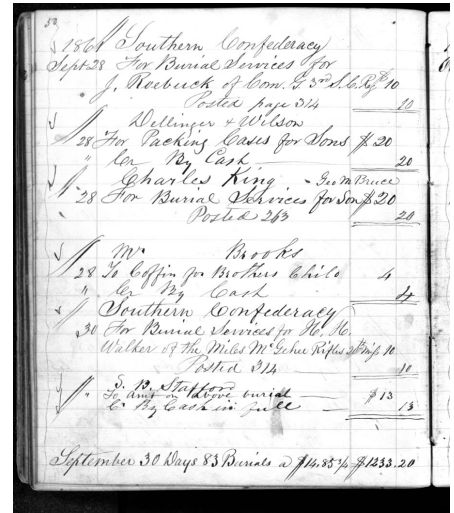 50
1861 Southern Confederacy
Sept. 28 For Burial Services for
J. Roebuck of Com. G 3rd S.C. Rgt 10
Posted page 314 10
Dellinger & Wilson
28 For Packing Cases for Sons $ 20
" Cr By Cash 20
Charles King - Geo M Bruce
28 For Burial Services for Son $20
Posted 263 20
Mr Brooks
28 To Coffin for Brothers Child 4
" Cr By Cash 4
Southern Confederacy
30 For Burial Services for H. H.
Walker of the Miles McGehee Rifles 20th Miss 10
Posted 314 10
S. B. Stafford
" To Amt on above burial $13
Cr By Cash in full 13
September 30 Days 83 Burials a $14.85 3/4 $1233.20